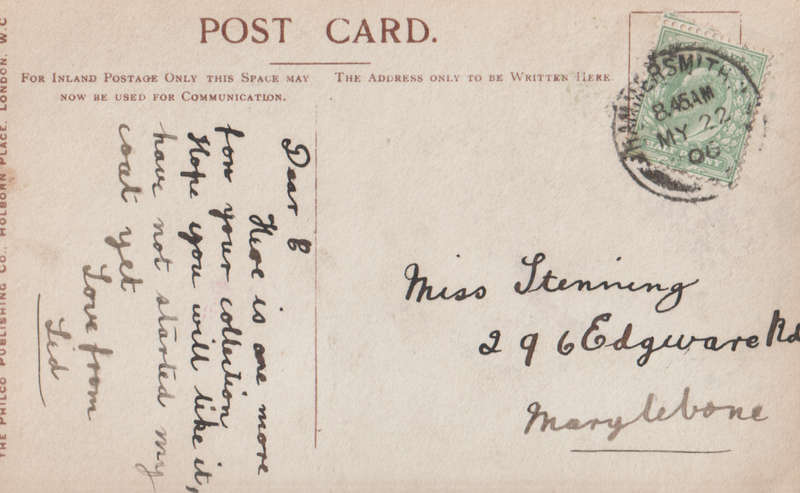 POST CARD.
FOR INLAND POSTAGE ONLY THIS SPACE MAY
NOW BE USED FOR COMMUNICATION.
THE ADDRESS ONLY TO BE WRITTEN HERE
HAMMERSMITH
8.45AM
MY 22
06
Dear E
Here is one more
for your collection
Hope you will like it,
have not started my
coat yet
Love from
Sid
Miss Stenning
296 Edgware Rd
Marylebone
THE PHILCO PUBLISHING CO., HOLBORN PLACE, LONDON, W.C